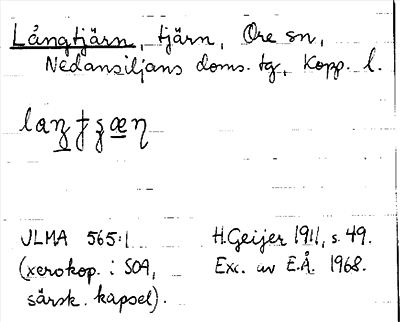 Långtjärn, tjärn, Ore sn,
Nedansiljans doms. tg, Kopp. l.
ULMA 565:1
(xerokop. i SOA,
särsk. kapsel).
H. Geijer 1911, s. 49.
Exc. av E.Å. 1968.